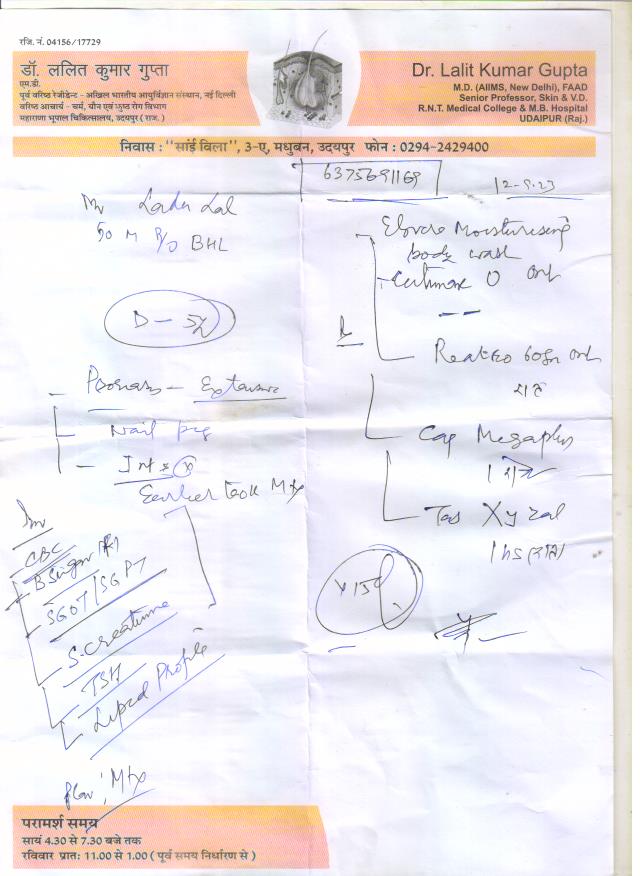 रजि. नं. 04156/17729
डॉ. ललित कुमार गुप्ता
एम.डी.
पूर्व वरिष्ठ रेजीडेन्ट - अखिल भारतीय आयुर्विज्ञान संस्थान, नई दिल्ली
वरिष्ठ आचार्य - चर्म, यौन एवं कुष्ठ रोग विभाग
महाराणा भूपाल चिकित्सालय, उदयपुर ( राज. )
Dr. Lalit Kumar Gupta
M.D. (AIIMS, New Delhi), FAAD
Senior Professor, Skin & V.D.
R.N.T. Medical College & M.B. Hospital
UDAIPUR (Raj.)
निवास : "सांई विला", 3-ए, मधुबन, उदयपुर फोन : 0294-2429400
6375691169
Lal
50 M R/O BHL
D - 5y
Psoriasis - Extensive
Nail
Earlier took Mtx
Inv
CBC
B Sugar
SGOT/SGPT
S. Creatinine
TSH
Lipid Profile
plan: Mtx
Moisturising
body wash
O oint
Rx
oint
Cap
Tab Xyzal
1 hs
x 15d
परामर्श समय
सायं 4.30 से 7.30 बजे तक
रविवार प्रातः 11.00 से 1.00 ( पूर्व समय निर्धारण से )